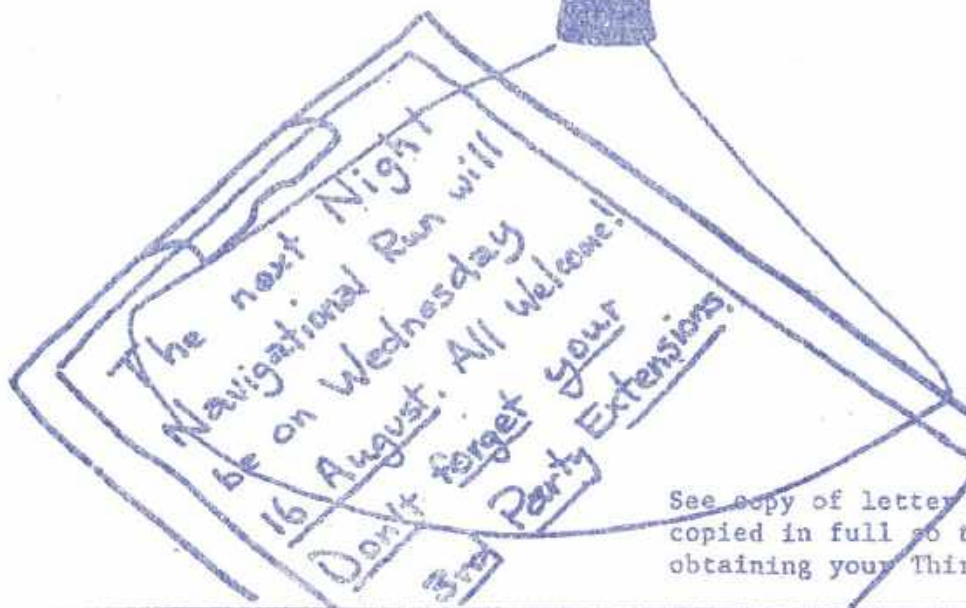 The next Night
Navigational Run will
be on Wednesday
16 August. All Welcome!
Don't forget your
3rd Party Extensions.
See copy of letter
copied in full so t
obtaining your Thir